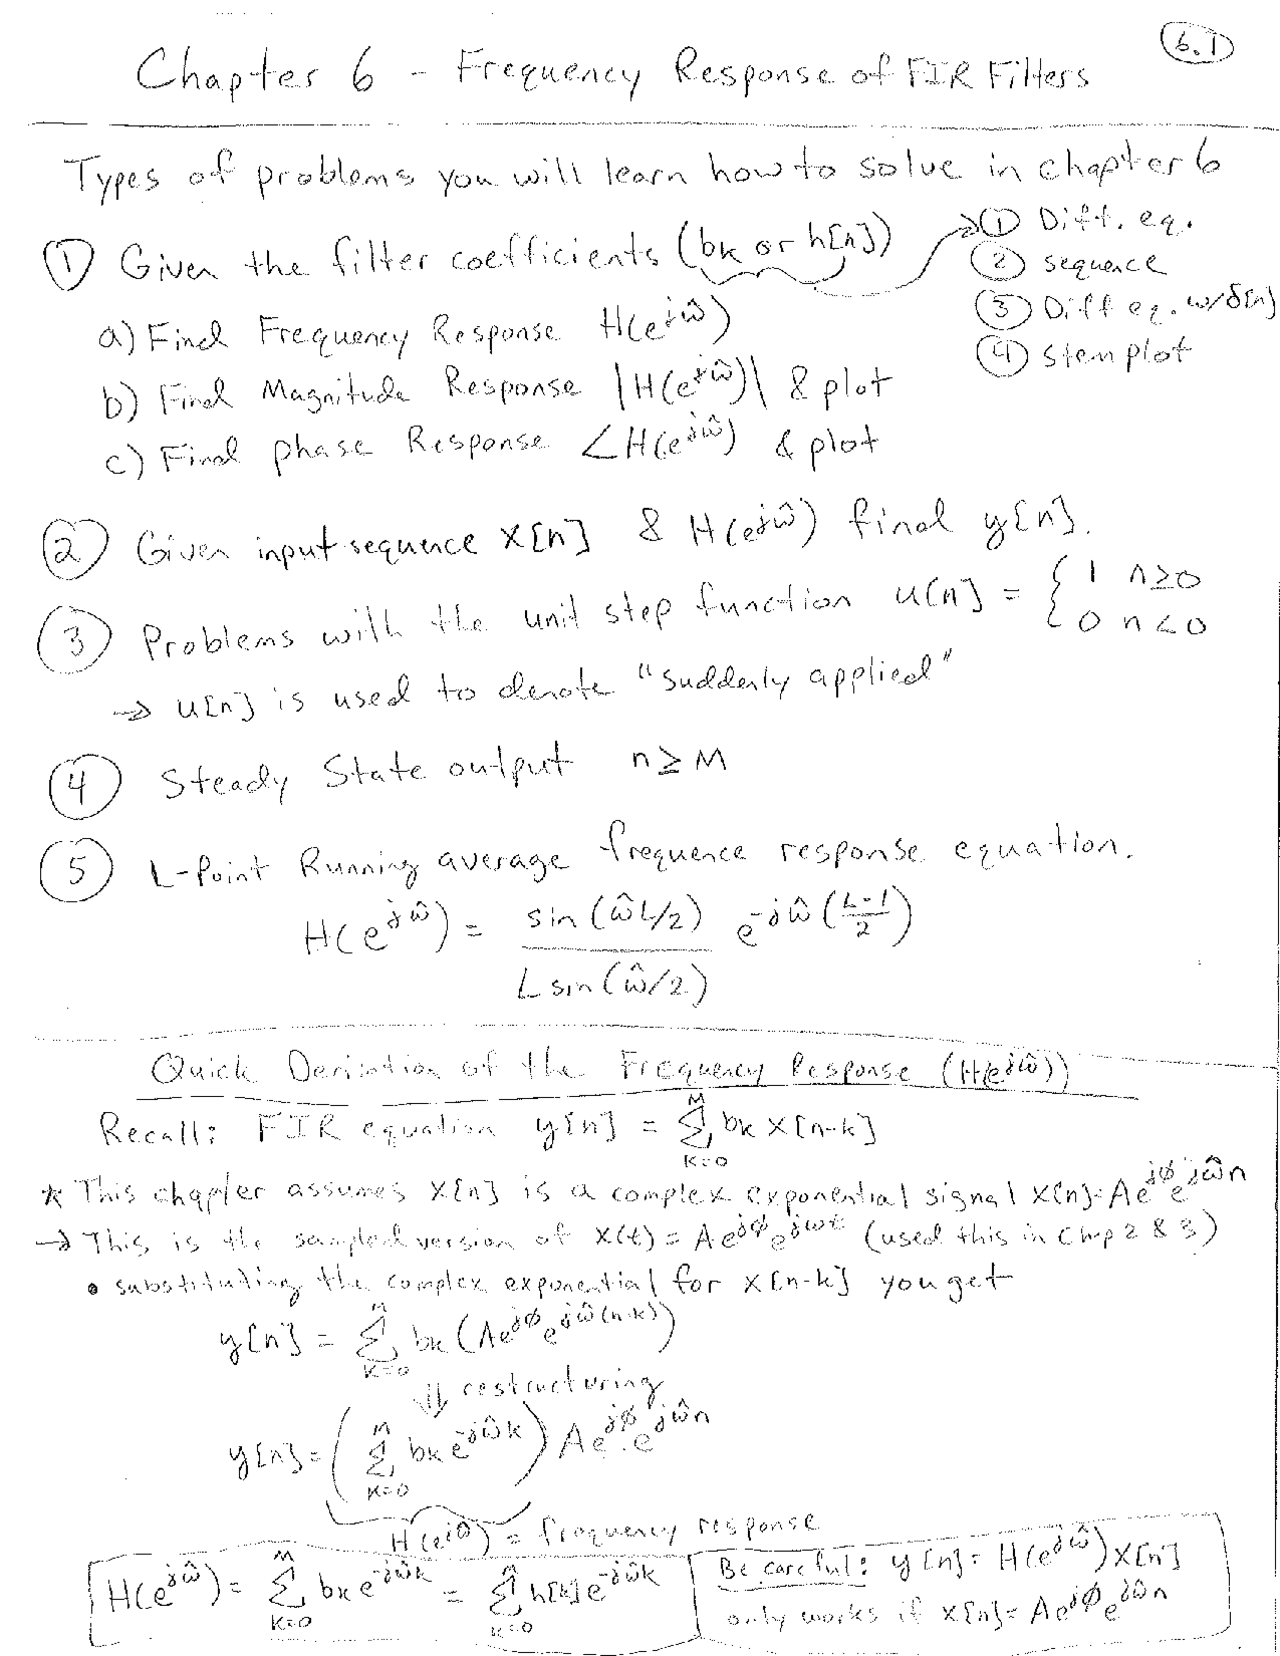 6.1
Chapter 6 - Frequency Response of FIR Filters
Types of problems you will learn how to solve in chapter 6
① Given the filter coefficients (bk or h[n]) → ① Diff. eq.
② sequence
③ Diff eq. w/δ[n]
④ stem plot
a) Find Frequency Response H(e^jω̂)
b) Find Magnitude Response |H(e^jω̂)| & plot
c) Find phase Response ∠H(e^jω̂) & plot
② Given input sequence x[n] & H(e^jω̂) find y[n].
③ Problems with the unit step function u[n] = { 1 n≥0
0 n<0
→ u[n] is used to denote "suddenly applied"
④ Steady State output n≥M
⑤ L-Point Running average frequence response equation.
H(e^jω̂) = sin(ω̂L/2) / L sin(ω̂/2) e^-jω̂(L-1/2)
Quick Derivation of the Frequency Response (H(e^jω̂))
Recall: FIR equation y[n] = Σ_{k=0}^{M} bk x[n-k]
* This chapter assumes x[n] is a complex exponential signal x[n]=Ae^jφ e^jω̂n
→ This is the sampled version of x(t) = Ae^jφ e^jωt (used this in Chp 2 & 3)
• substituting the complex exponential for x[n-k] you get
y[n] = Σ_{k=0}^{M} bk (Ae^jφ e^jω̂(n-k))
⇓ restructuring
y[n] = ( Σ_{k=0}^{M} bk e^-jω̂k ) Ae^jφ · e^jω̂n
H(e^jω̂) = frequency response
H(e^jω̂) = Σ_{k=0}^{M} bk e^-jω̂k = Σ_{k=0}^{M} h[k] e^-jω̂k
Be careful: y[n] = H(e^jω̂) x[n]
only works if x[n] = Ae^jφ e^jω̂n